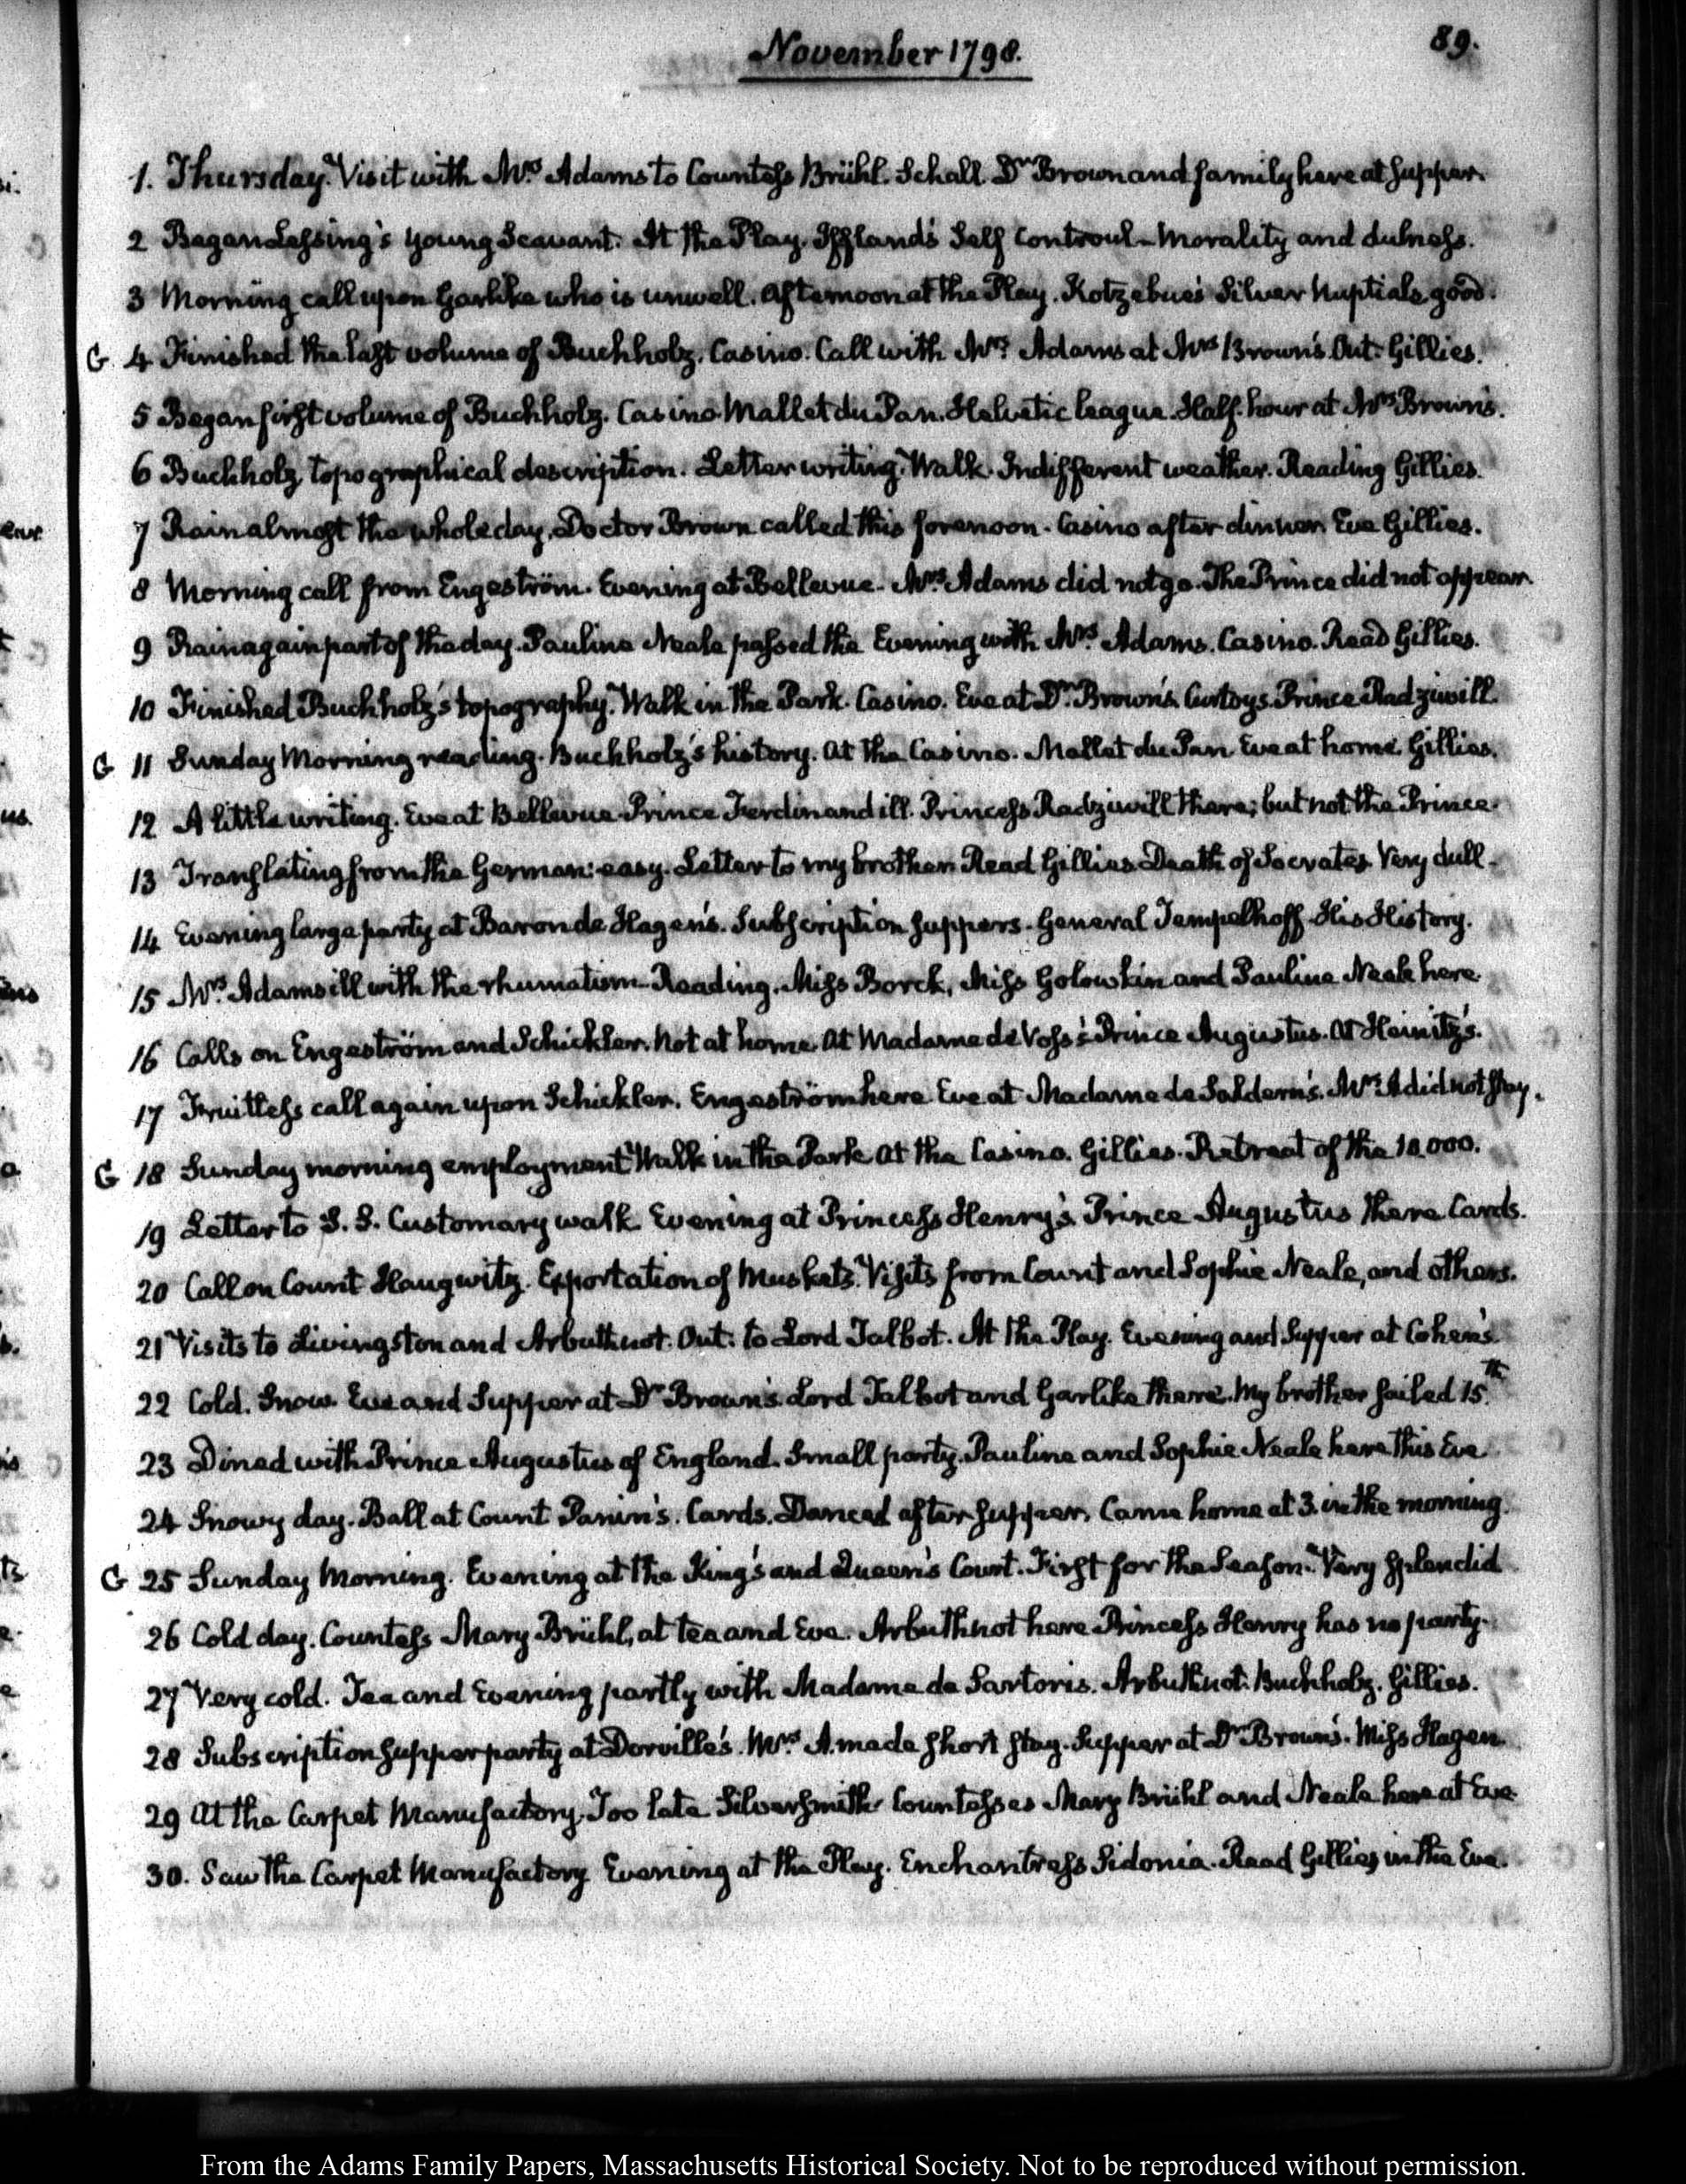 November 1798.
89.
1. Thursday. Visit with Mrs. Adams to Countess Brühl. Schall. Dr. Brown and family here at supper.
2 Began Lessing's young Scavant. At the Play. Iffland's Self Controul - Morality and dulness.
3 Morning call upon Garlike who is unwell. Afternoon at the Play. Kotzebue's Silver Nuptials good.
G. 4 Finished the last volume of Buchholz. Casino. Call with Mrs. Adams at Mrs Brown's. Out. Gillies.
5 Began first volume of Buchholz. Casino Mallet du Pan. Helvetic league. Half hour at Mrs Brown's.
6 Buchholz topographical description. Letter writing. Walk. Indifferent weather. Reading Gillies.
7 Rain almost the whole day. Doctor Brown called this forenoon. Casino after dinner. Eve Gillies.
8 Morning call from Engeström. Evening at Bellevue. Mrs. Adams did not go. The Prince did not appear.
9 Rain again part of the day. Pauline Neale passed the Evening with Mrs. Adams. Casino. Read Gillies.
10 Finished Buchholz's topography. Walk in the Park. Casino. Eve at Dr. Brown's. Curtoys. Prince Radziwill.
G 11 Sunday Morning reading. Buchholz's history. At the Casino. Mallet du Pan Eve at home. Gillies.
12 A little writing. Eve at Bellevue. Prince Ferdinand ill. Princess Radziwill there; but not the Prince.
13 Translating from the German: easy. Letter to my brother. Read Gillies. Death of Socrates. Very dull.
14 Evening large party at Baron de Hagen's. Subscription suppers. General Tempelhoff. His History.
15 Mrs. Adams ill with the rhumatism. Reading. Miss Borck, Miss Golowkin and Pauline Neale here.
16 Calls on Engeström and Schickler. Not at home. At Madame de Voss's Prince Augustus. At Heinitz's.
17 Fruitless call again upon Schickler. Engeström here. Eve at Madame de Soldern's. Mrs. A did not stay.
G 18 Sunday morning employment. Walk in the Park. At the Casino. Gillies. Retreat of the 10.000.
19 Letter to S. S. Customary walk. Evening at Princess Henry's. Prince Augustus there. Cards.
20 Call on Count Haugwitz. Exportation of Muskets. Visits from Count and Sophie Neale, and others.
21 Visits to Livingston and Arbuthnot. Out: to Lord Talbot. At the Play. Evening and Supper at Cohen's.
22 Cold. Snow. Eve and Supper at Dr Brown's. Lord Talbot and Garlike there. My brother sailed 15th.
23 Dined with Prince Augustus of England. Small party. Pauline and Sophie Neale here this Eve
24 Snowy day. Ball at Count Panin's. Cards. Danced after supper. Came home at 3. in the morning.
G 25 Sunday Morning. Evening at the King's and Queen's Court. First for the Season. Very splendid
26 Cold day. Countess Mary Brühl, at tea and Eve. Arbuthnot here Princess Henry has no party.
27 Very cold. Tea and Evening partly with Madame de Sartoris. Arbuthnot. Buchholz. Gillies.
28 Subscription supper party at Dorville's. Mrs. A. made short stay. Supper at Dr Brown's. Miss Hagen.
29 At the Carpet Manufactory. Too late Silversmith. Countesses Mary Brühl and Neale here at Eve
30. Saw the Carpet Manufactory Evening at the Play. Enchantress Sidonia. Read Gillies in the Eve.
From the Adams Family Papers, Massachusetts Historical Society. Not to be reproduced without permission.